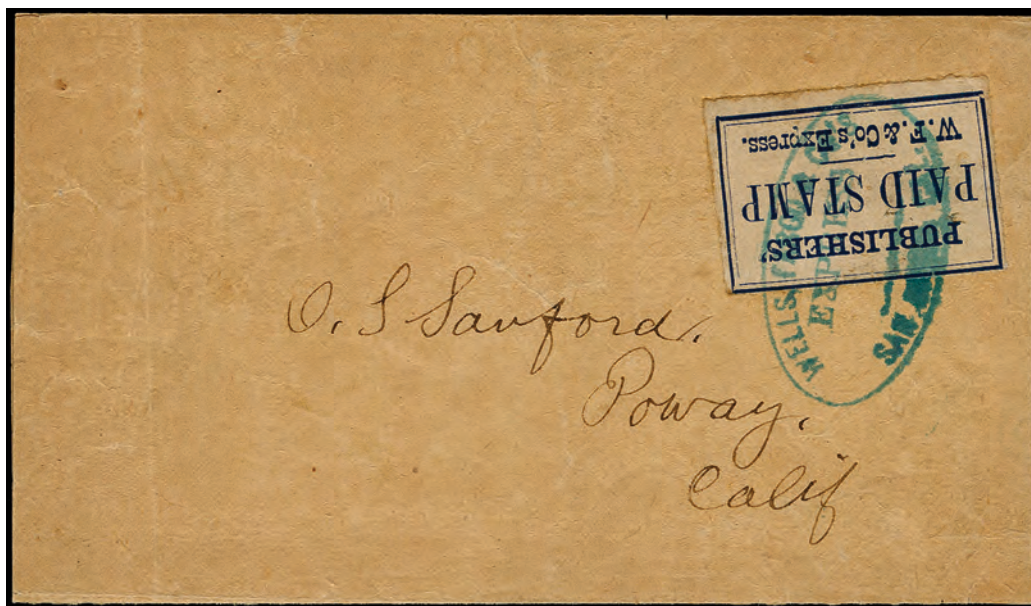 PUBLISHERS'
PAID STAMP
W. F. & Co's Express.
WELLS, FARGO & CO'S
EXPRESS
SAN
O. S Sanford.
Poway.
Calif